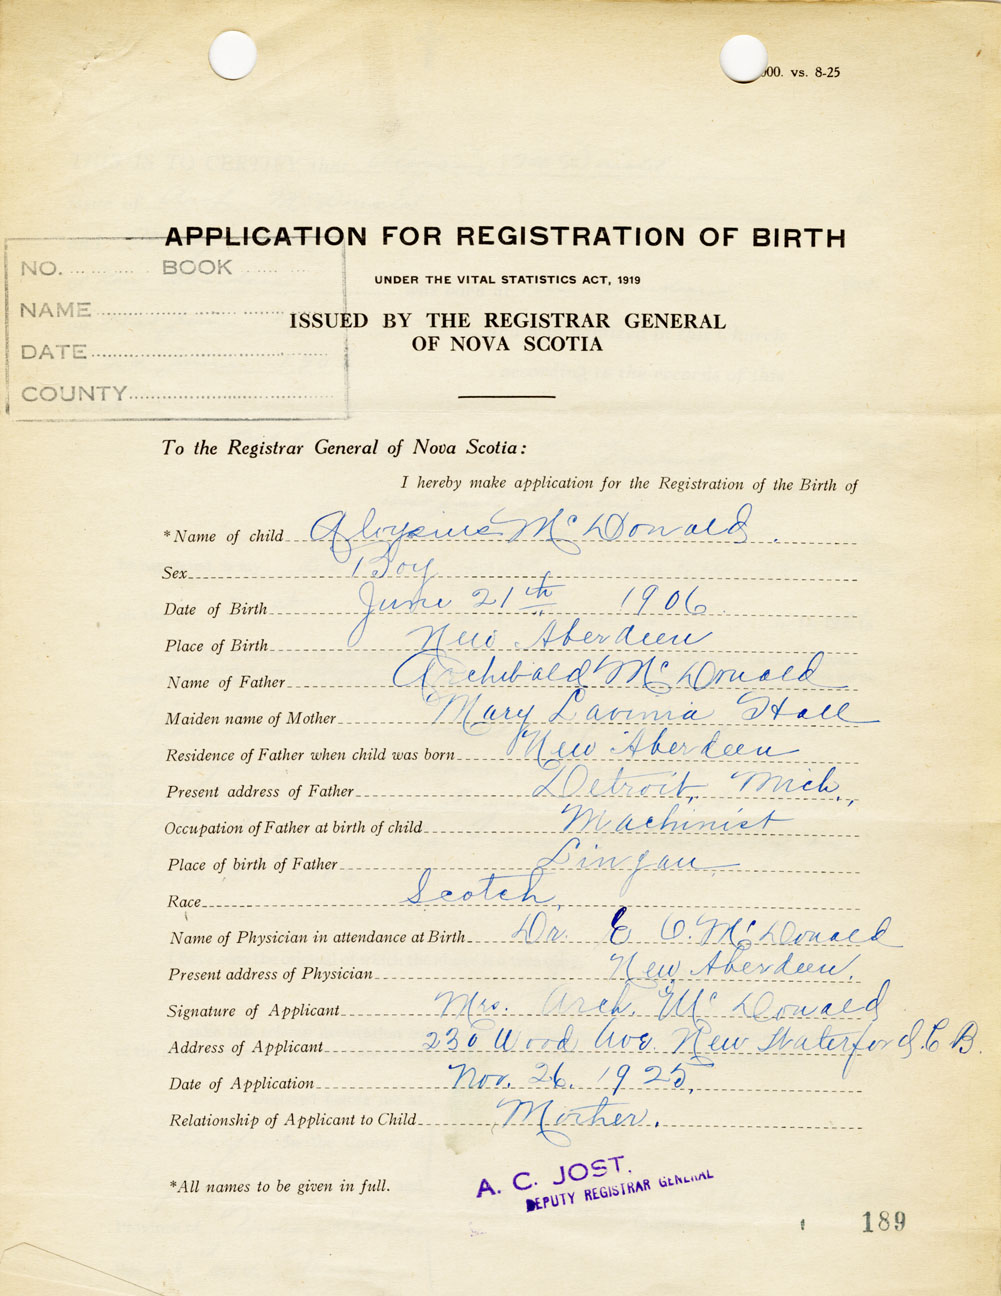 000. vs. 8-25
APPLICATION FOR REGISTRATION OF BIRTH
UNDER THE VITAL STATISTICS ACT, 1919
ISSUED BY THE REGISTRAR GENERAL
OF NOVA SCOTIA
NO. BOOK
NAME
DATE
COUNTY
To the Registrar General of Nova Scotia:
I hereby make application for the Registration of the Birth of
*Name of child Aloysius McDonald.
Sex Boy
Date of Birth June 21th 1906.
Place of Birth New Aberdeen
Name of Father Archibald McDonald
Maiden name of Mother Mary Lavinia Hall
Residence of Father when child was born New Aberdeen
Present address of Father Detroit, Mich.,
Occupation of Father at birth of child Machinist
Place of birth of Father Lingan
Race Scotch,
Name of Physician in attendance at Birth Dr. E O. McDonald
Present address of Physician New Aberdeen.
Signature of Applicant Mrs. Arch. McDonald
Address of Applicant 230 Wood Ave. New Waterford, C B.
Date of Application Nov. 26. 1925,
Relationship of Applicant to Child Mother.
*All names to be given in full.
A. C. JOST.
DEPUTY REGISTRAR GENERAL
189